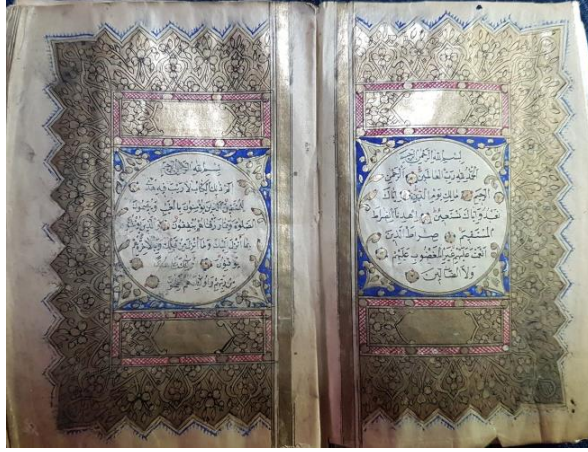 بسم الله الرحمن الرحيم
الحمد لله رب العالمين الرحمن
الرحيم مالك يوم الدين اياك
نعبد واياك نستعين اهدنا الصراط
المستقيم صراط الذين
انعمت عليهم غير المغضوب عليهم
ولا الضالين
بسم الله الرحمن الرحيم
الم ذلك الكتاب لا ريب فيه هدى
للمتقين الذين يؤمنون بالغيب ويقيمون
الصلوة ومما رزقناهم ينفقون والذين يؤمنون
بما انزل اليك وما انزل من قبلك وبالاخرة هم
يوقنون اولئك على هدى
من ربهم واولئك هم المفلحون